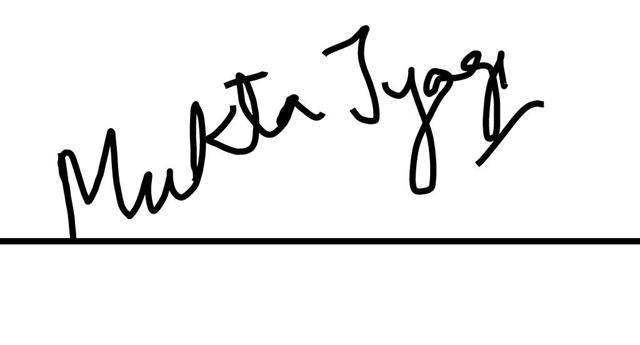 Mukta Tyagi